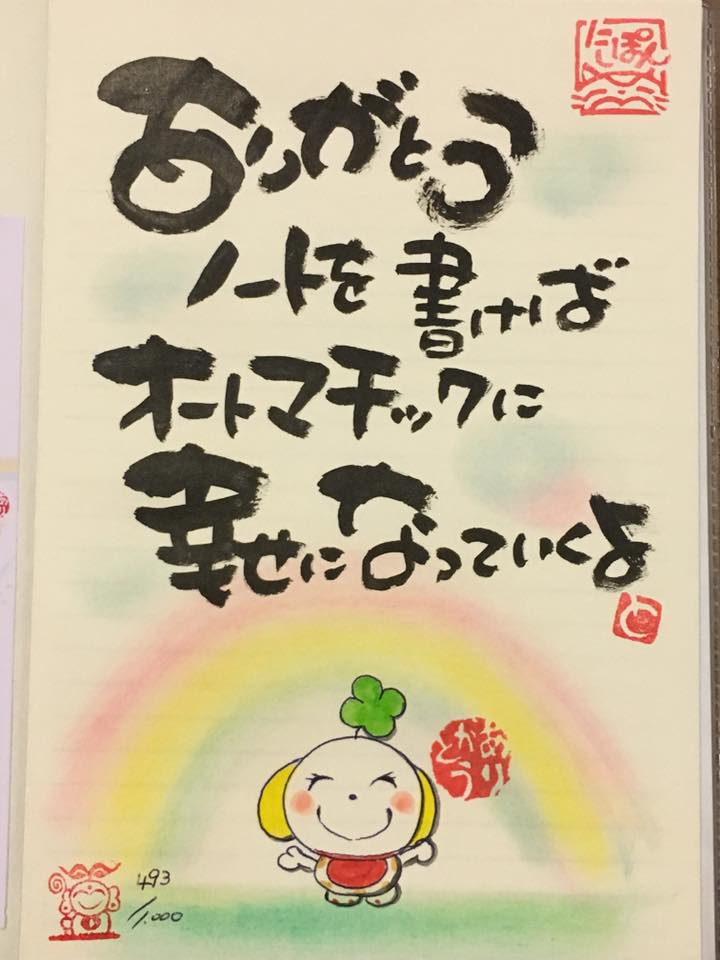 にしぽん
ありがとう
ノートを書けば
オートマチックに
幸せになっていくよ
と
493
/1.000